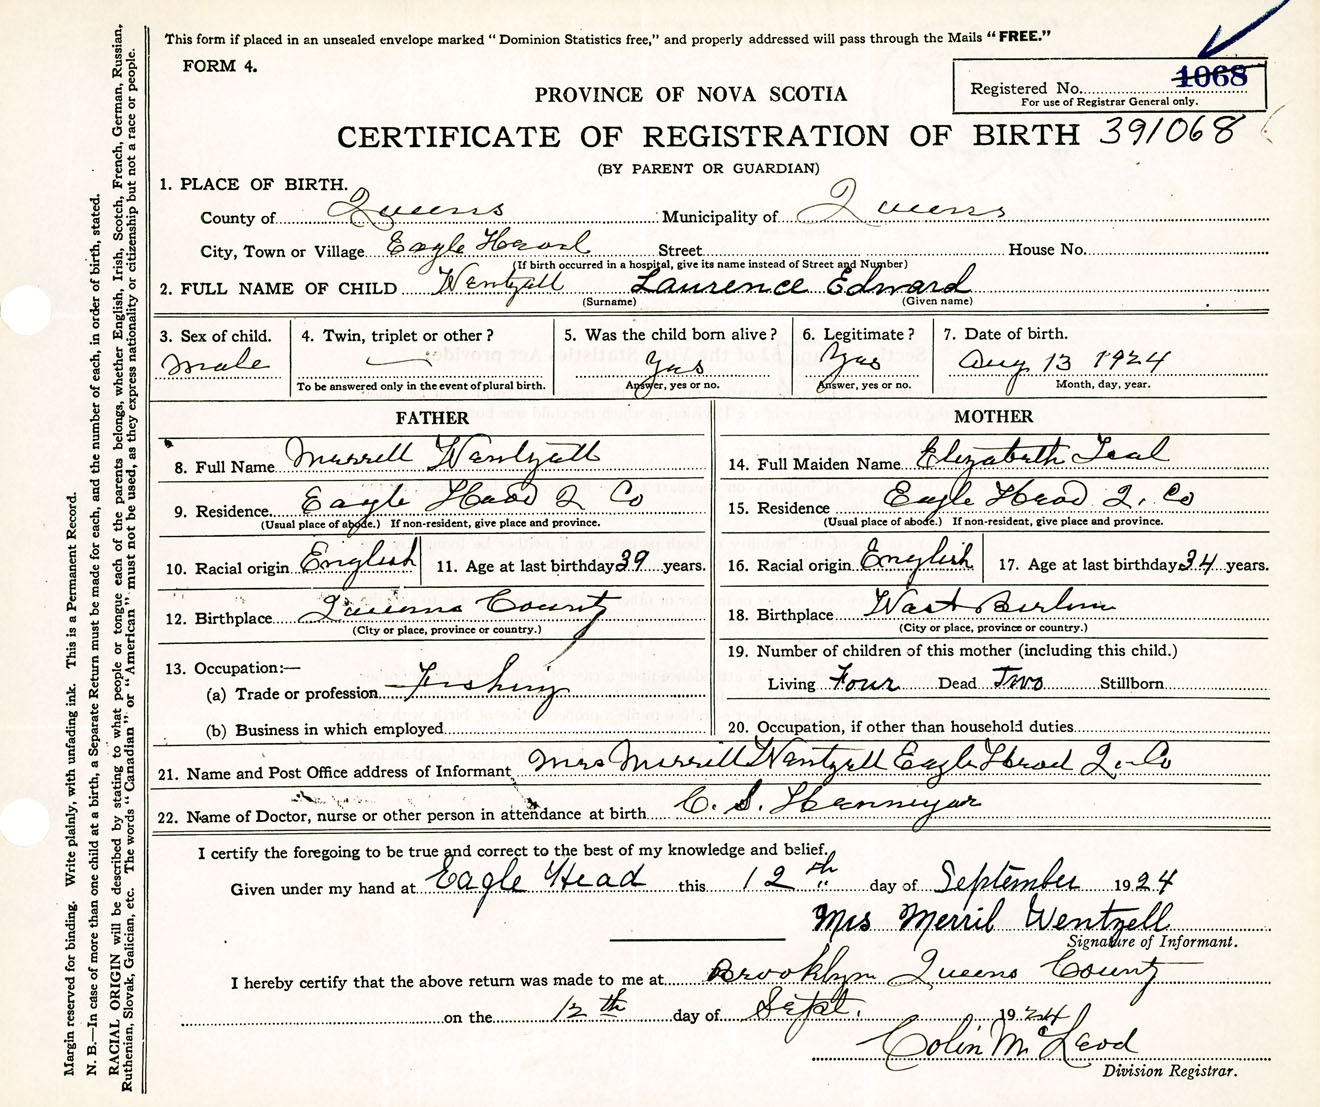 This form if placed in an unsealed envelope marked "Dominion Statistics free," and properly addressed will pass through the Mails "FREE."
FORM 4.
1068
Registered No.
For use of Registrar General only.
PROVINCE OF NOVA SCOTIA
CERTIFICATE OF REGISTRATION OF BIRTH 391068
(BY PARENT OR GUARDIAN)
1. PLACE OF BIRTH.
County of Queens Municipality of Queens
City, Town or Village Eagle Head Street House No.
(If birth occurred in a hospital, give its name instead of Street and Number)
2. FULL NAME OF CHILD Wentzell Laurence Edward
(Surname) (Given name)
3. Sex of child. 4. Twin, triplet or other? 5. Was the child born alive? 6. Legitimate? 7. Date of birth.
Male — Yes Yes Aug 13 1924
To be answered only in the event of plural birth. Answer, yes or no. Answer, yes or no. Month, day, year.
FATHER MOTHER
8. Full Name Merrell Wentzell 14. Full Maiden Name Elizabeth Teal
9. Residence Eagle Head Q Co 15. Residence Eagle Head Q. Co
(Usual place of abode.) If non-resident, give place and province. (Usual place of abode.) If non-resident, give place and province.
10. Racial origin English 11. Age at last birthday 39 years. 16. Racial origin English 17. Age at last birthday 34 years.
12. Birthplace Queens County 18. Birthplace West Berlin
(City or place, province or country.) (City or place, province or country.)
13. Occupation:— 19. Number of children of this mother (including this child.)
(a) Trade or profession Fishing Living Four Dead Two Stillborn
(b) Business in which employed 20. Occupation, if other than household duties
21. Name and Post Office address of Informant Mrs Merrell Wentzell Eagle Head Q. Co
22. Name of Doctor, nurse or other person in attendance at birth C. S. Hennigar
I certify the foregoing to be true and correct to the best of my knowledge and belief.
Given under my hand at Eagle Head this 12th day of September 1924
Mrs Merril Wentzell
Signature of Informant.
I hereby certify that the above return was made to me at Brooklyn Queens County
on the 12th day of Sept. 1924
Colin McLeod
Division Registrar.
Margin reserved for binding. Write plainly, with unfading ink. This is a Permanent Record.
N. B.—In case of more than one child at a birth, a Separate Return must be made for each, and the number of each, in order of birth, stated.
RACIAL ORIGIN will be described by stating to what people or tongue each of the parents belongs, whether English, Irish, Scotch, French, German, Russian,
Ruthenian, Slovak, Galician, etc. The words "Canadian" or "American" must not be used, as they express nationality or citizenship but not a race or people.